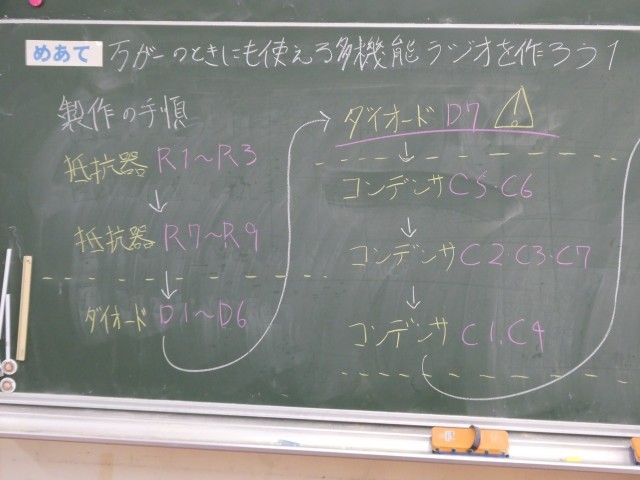 めあて 万が一のときにも使える多機能ラジオを作ろう1
製作の手順
抵抗器 R1〜R3
↓
抵抗器 R7〜R9
↓
ダイオード D1〜D6
ダイオード D7 ⚠
↓
コンデンサ C5・C6
↓
コンデンサ C2 C3・C7
↓
コンデンサ C1.C4